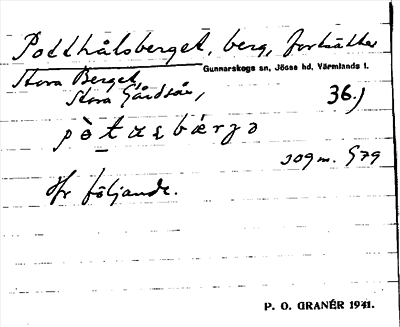 Potthålsberget, berg, fortsätter
Gunnarskogs sn, Jösse hd, Värmlands l.
Stora Berget,
Stora Gårdsås,
36.)
309 m. G79
Jfr följande.
P. O. GRANÉR 1941.